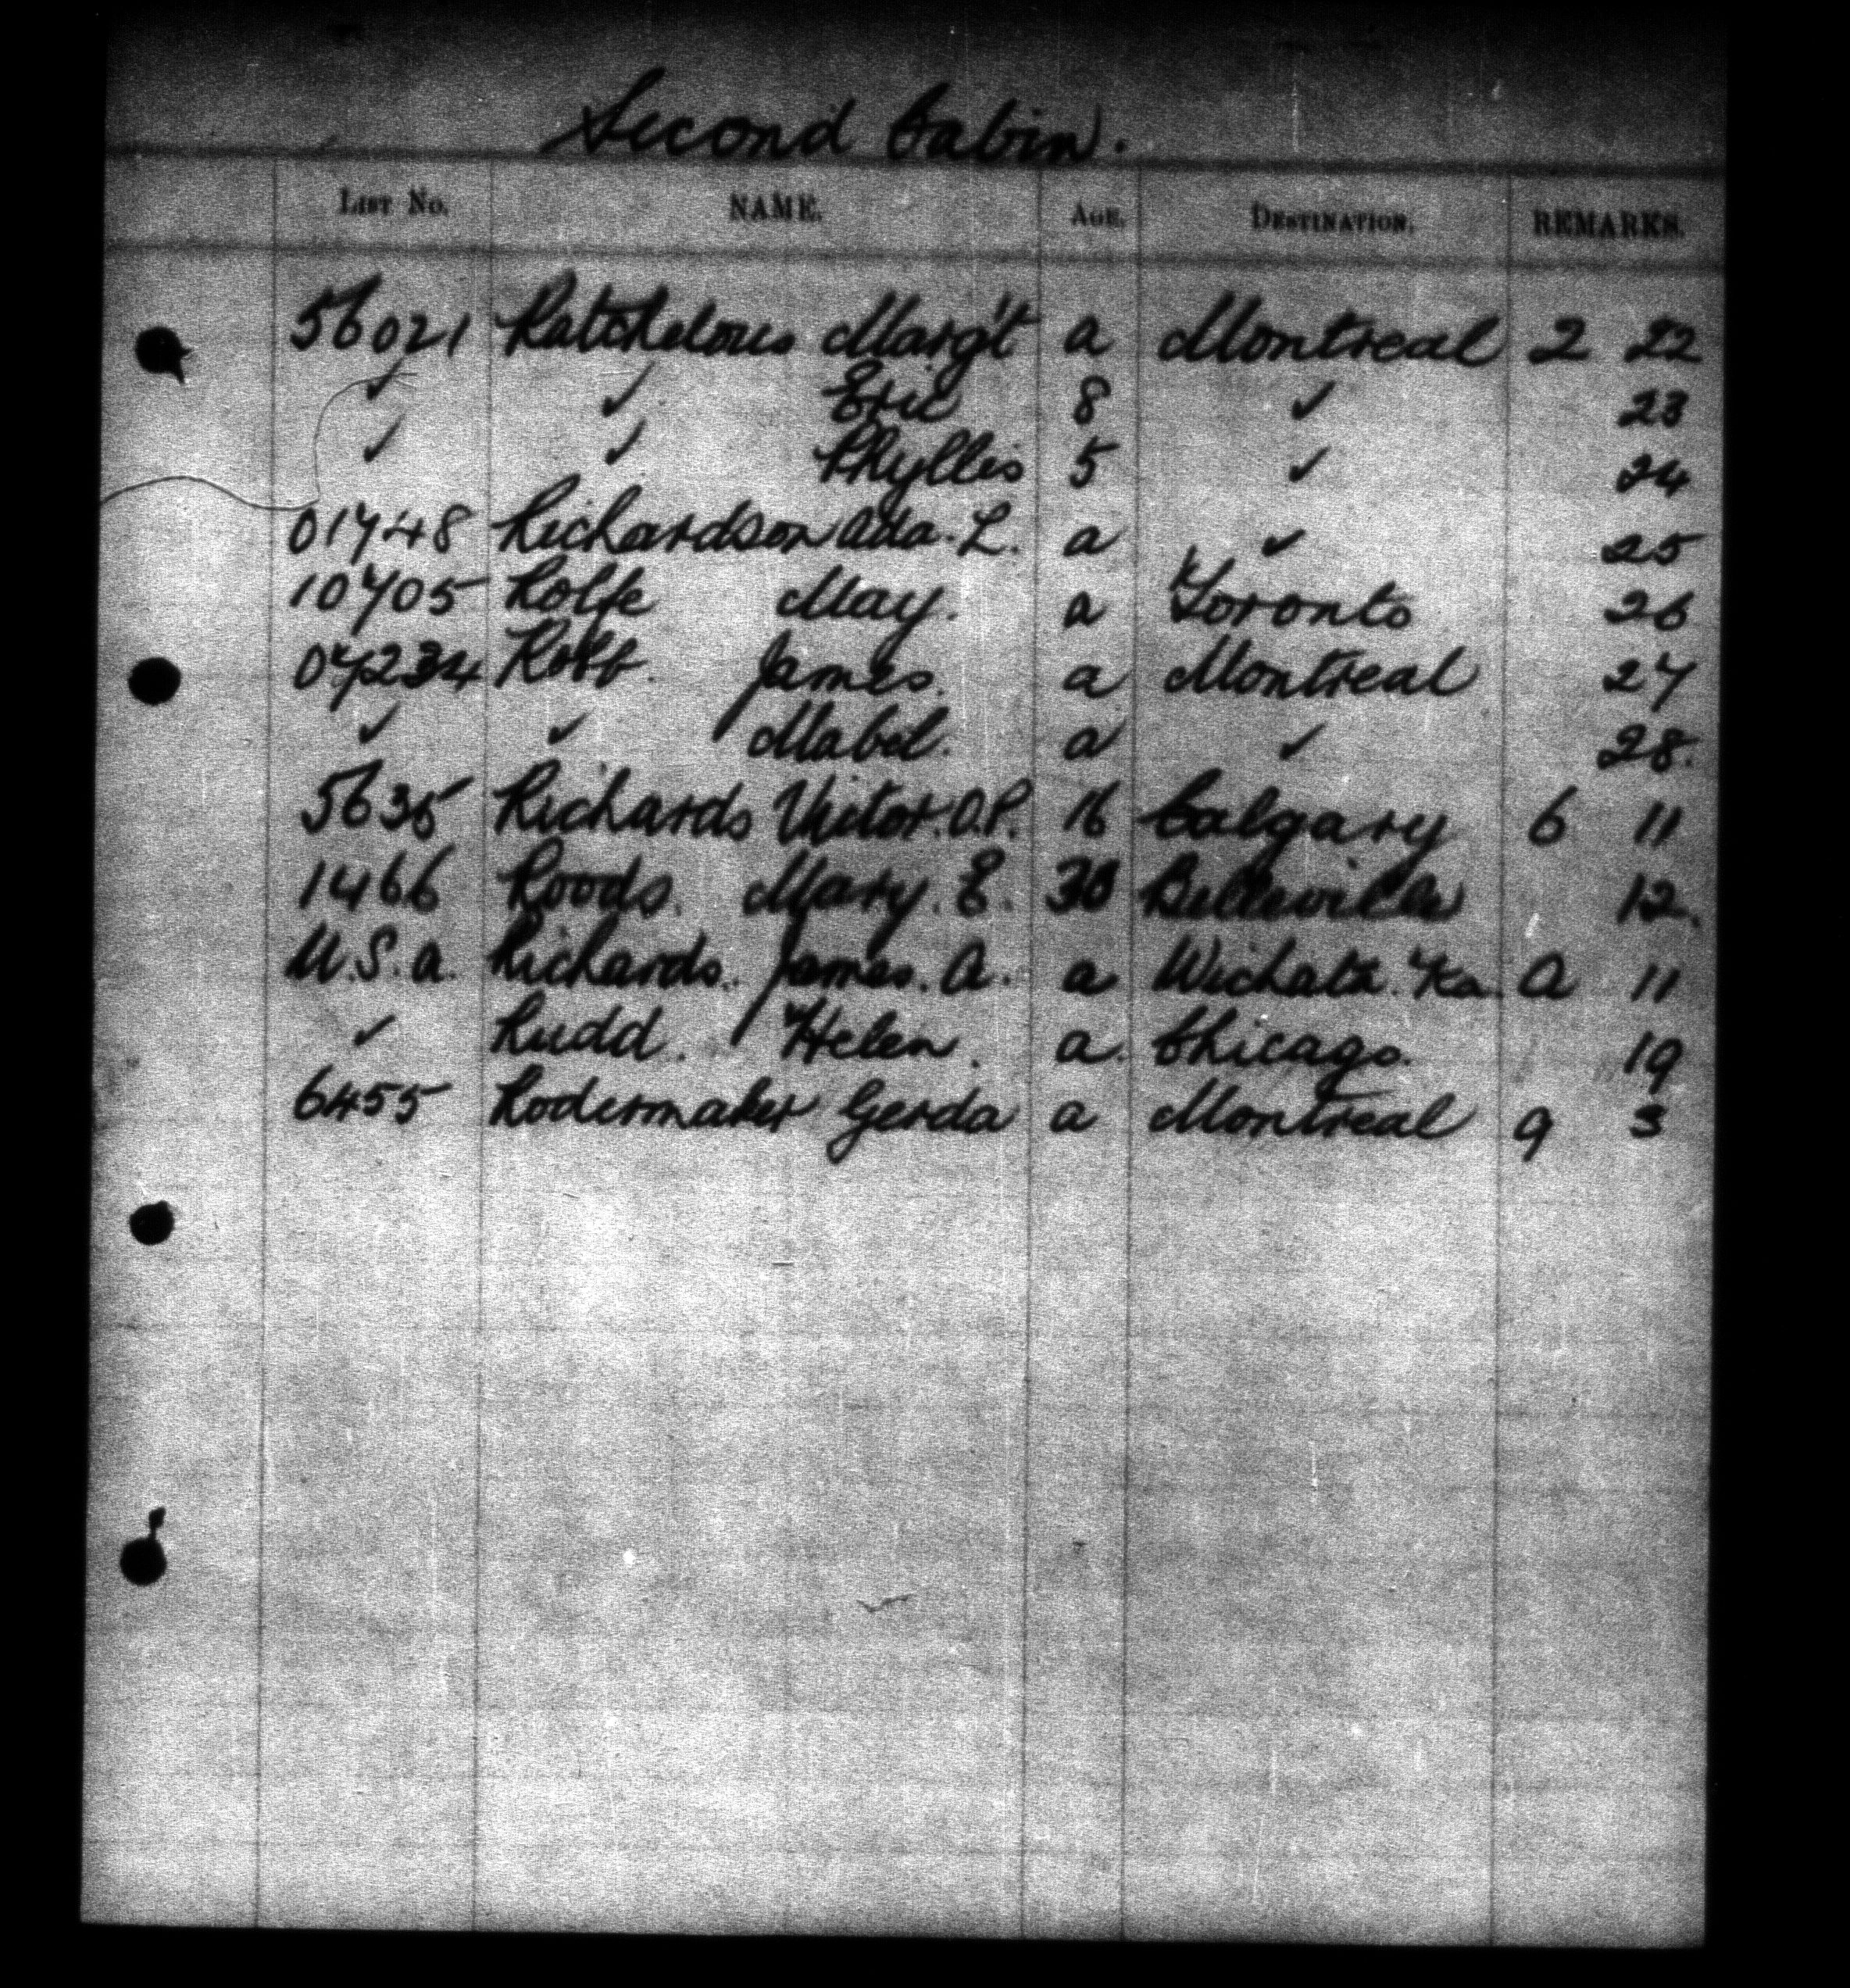 Second Cabin.
LIST No. NAME. AGE. DESTINATION. REMARKS.
56021 Ratchelous Marg't a Montreal 2 22
✓ ✓ Eric 8 ✓ 23
✓ ✓ Phyllis 5 ✓ 24
01748 Richardson Ada. L. a ✓ 25
10705 Rolfe May. a Toronto 26
07234 Robb. James. a Montreal 27
✓ ✓ Mabel. a ✓ 28.
5635 Richards Victor. O.P. 16 Calgary 6 11
1466 Roods. Mary. E. 30 Belleville 12.
U.S.a. Richards. James. A. a Wichata. Ka. A 11
✓ Rudd. Helen. a. Chicago. 19
6455 Rodermaker Gerda a Montreal 9 3